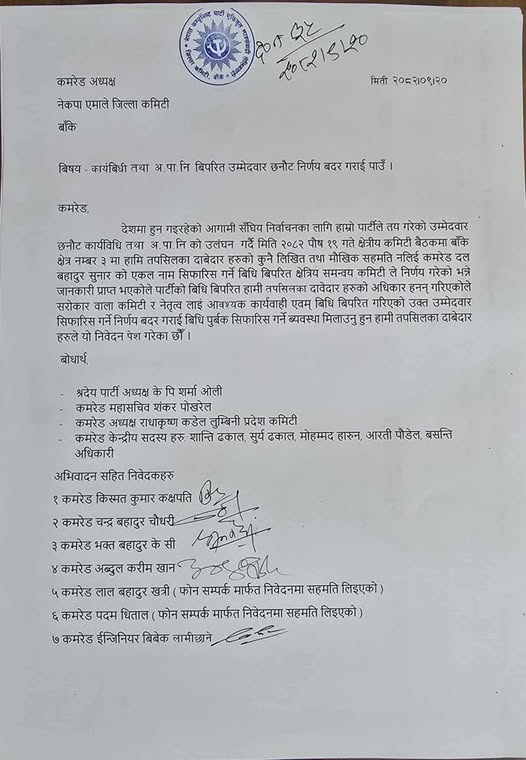 २०८२।९।२०
कमरेड अध्यक्ष
मिती २०८२।०९।२०
नेकपा एमाले जिल्ला कमिटी
बाँके
बिषय - कार्यबिधी तथा अ.पा.नि बिपरित उम्मेदवार छनौट निर्णय बदर गराई पाउँ ।
कमरेड,
देशमा हुन गइरहेको आगामी सँघिय निर्वाचनका लागि हाम्रो पार्टीले तय गरेको उम्मेदवार
छनौट कार्यविधि तथा अ.पा.नि को उलंघन गर्दै मिति २०८२ पौष १९ गते क्षेत्रीय कमिटी बैठकमा बाँके
क्षेत्र नम्बर ३ मा हामि तपसिलका दाबेदार हरुको कुनै लिखित तथा मौखिक सहमति नलिई कमरेड दल
बहादुर सुनार को एकल नाम सिफारिस गर्ने बिधि बिपरित क्षेत्रिय समन्वय कमिटी ले निर्णय गरेको भन्ने
जानकारी प्राप्त भएकोले पार्टीको बिधि बिपरित हामी तपसिलका दावेदार हरुको अधिकार हनन् गरिएकोले
सरोकार वाला कमिटी र नेतृत्व लाई आवश्यक कार्यवाही एवम बिधि बिपरित गरिएको उक्त उम्मेदवार
सिफारिस गर्ने निर्णय बदर गराई बिधि पुर्बक सिफारिस गर्ने ब्यवस्था मिलाउनु हुन हामी तपसिलका दाबेदार
हरुले यो निवेदन पेश गरेका छौँ ।
बोधार्थ,
- श्रदेय पार्टी अध्यक्ष के पि शर्मा ओली
- कमरेड महासचिव शंकर पोखरेल
- कमरेड अध्यक्ष राधाकृष्ण कडेल लुम्बिनी प्रदेश कमिटी
- कमरेड केन्द्रीय सदस्य हरु शान्ति ढकाल, सुर्य ढकाल, मोहम्मद हारुन, आरती पौडेल, बसन्ति
अधिकारी
अभिवादन सहित निवेदकहरु
१ कमरेड किस्मत कुमार कक्षपति
२ कमरेड चन्द्र बहादुर चौधरी
३ कमरेड भक्त बहादुर के सी
४ कमरेड अब्दुल करीम खान
५ कमरेड लाल बहादुर खत्री ( फोन सम्पर्क मार्फत निवेदनमा सहमति लिइएको )
६ कमरेड पदम धिताल ( फोन सम्पर्क मार्फत निवेदनमा सहमति लिइएको )
७ कमरेड ईन्जिनियर बिबेक लामीछाने